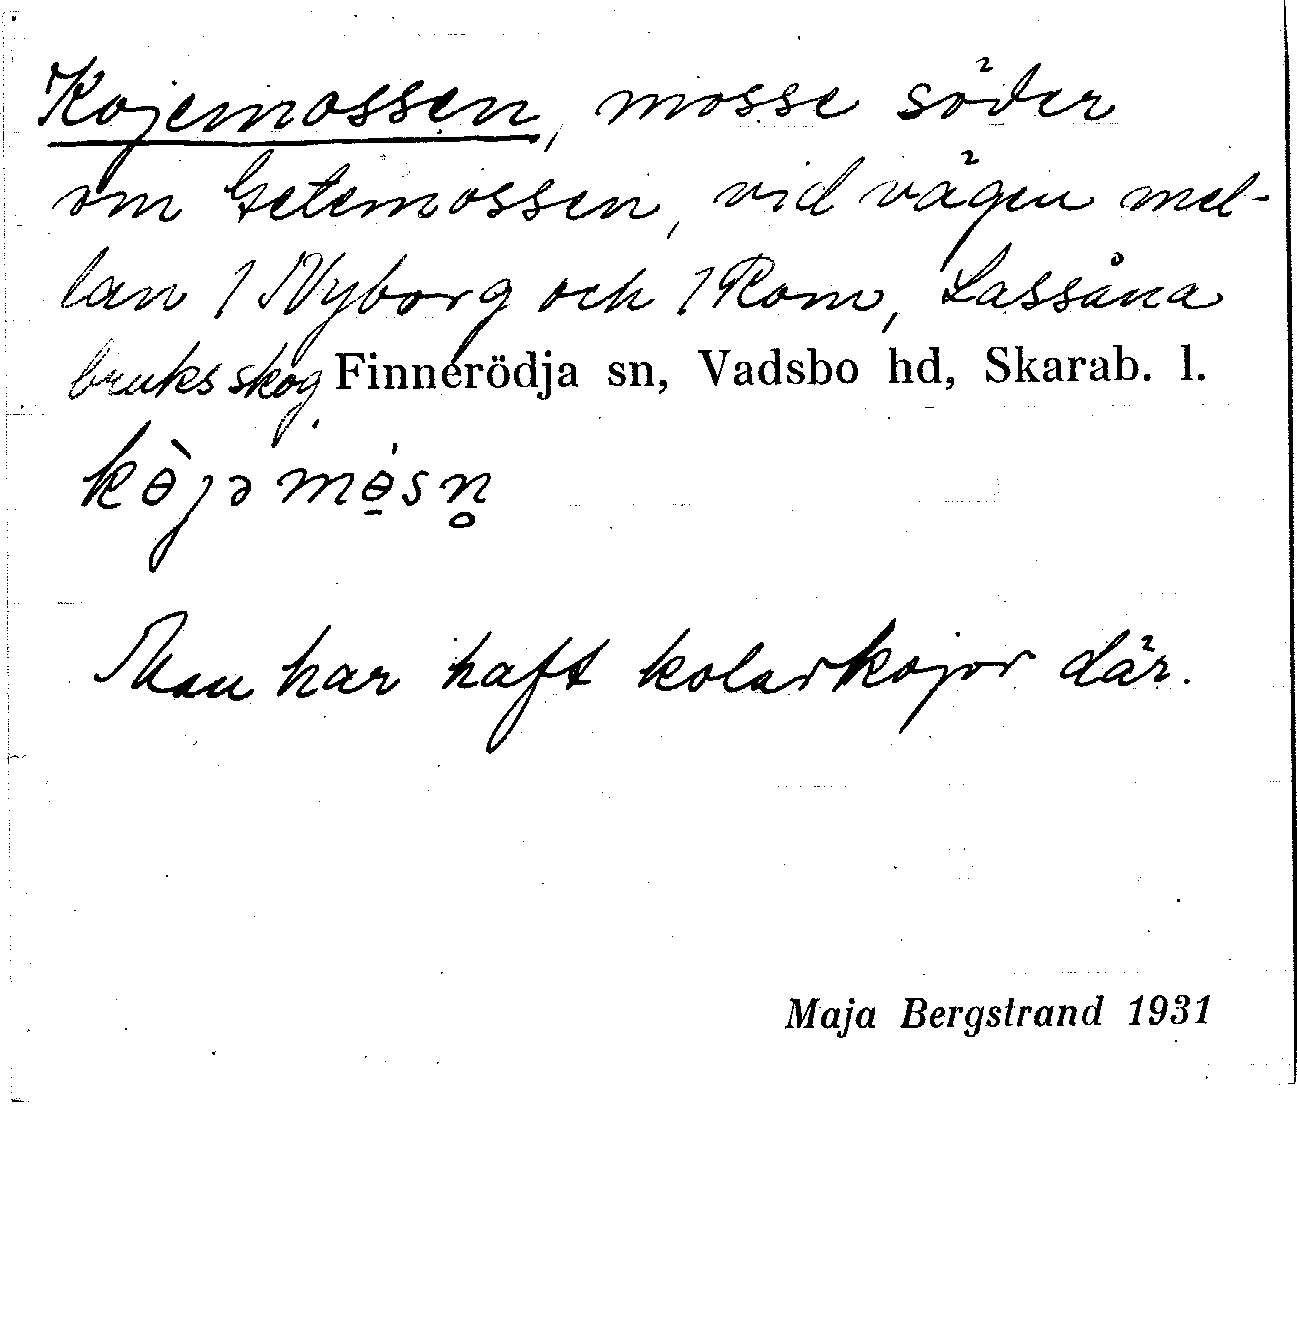 Kojemossen, mosse söder
om Getemossen, vid vägen mel-
lan 1 Nyborg och 1 Rom, Lassåna
bruks skog. Finnerödja sn, Vadsbo hd, Skarab. l.
kɵ̀jə mɵ̱́sn̥
Man har haft kolarkojor där.
Maja Bergstrand 1931